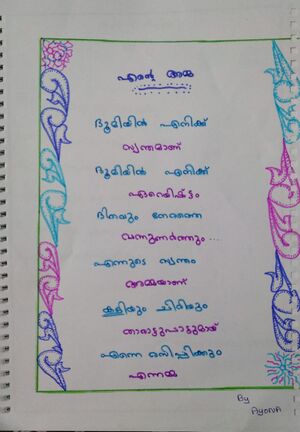 എന്റെ അമ്മ
ഭൂമിയിൽ എനിക്ക്
സ്വന്തമാണ്
ഭൂമിയിൽ എനിക്ക്
ഏറെയിഷ്ടം
ദിനവും നേരത്തെ
വന്നുണർത്തും...
എന്നുടെ സ്വന്തം
അമ്മയാണ്
കളിയും ചിരിയും
താരാട്ടുപാട്ടുമായ്
എന്നെ രസിപ്പിക്കും
എന്നമ്മ
By
Ayona